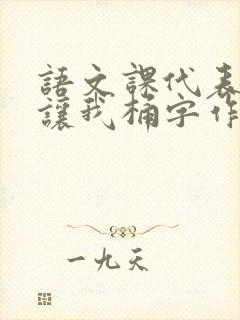 語文課代表
讓我桶字作
一九天